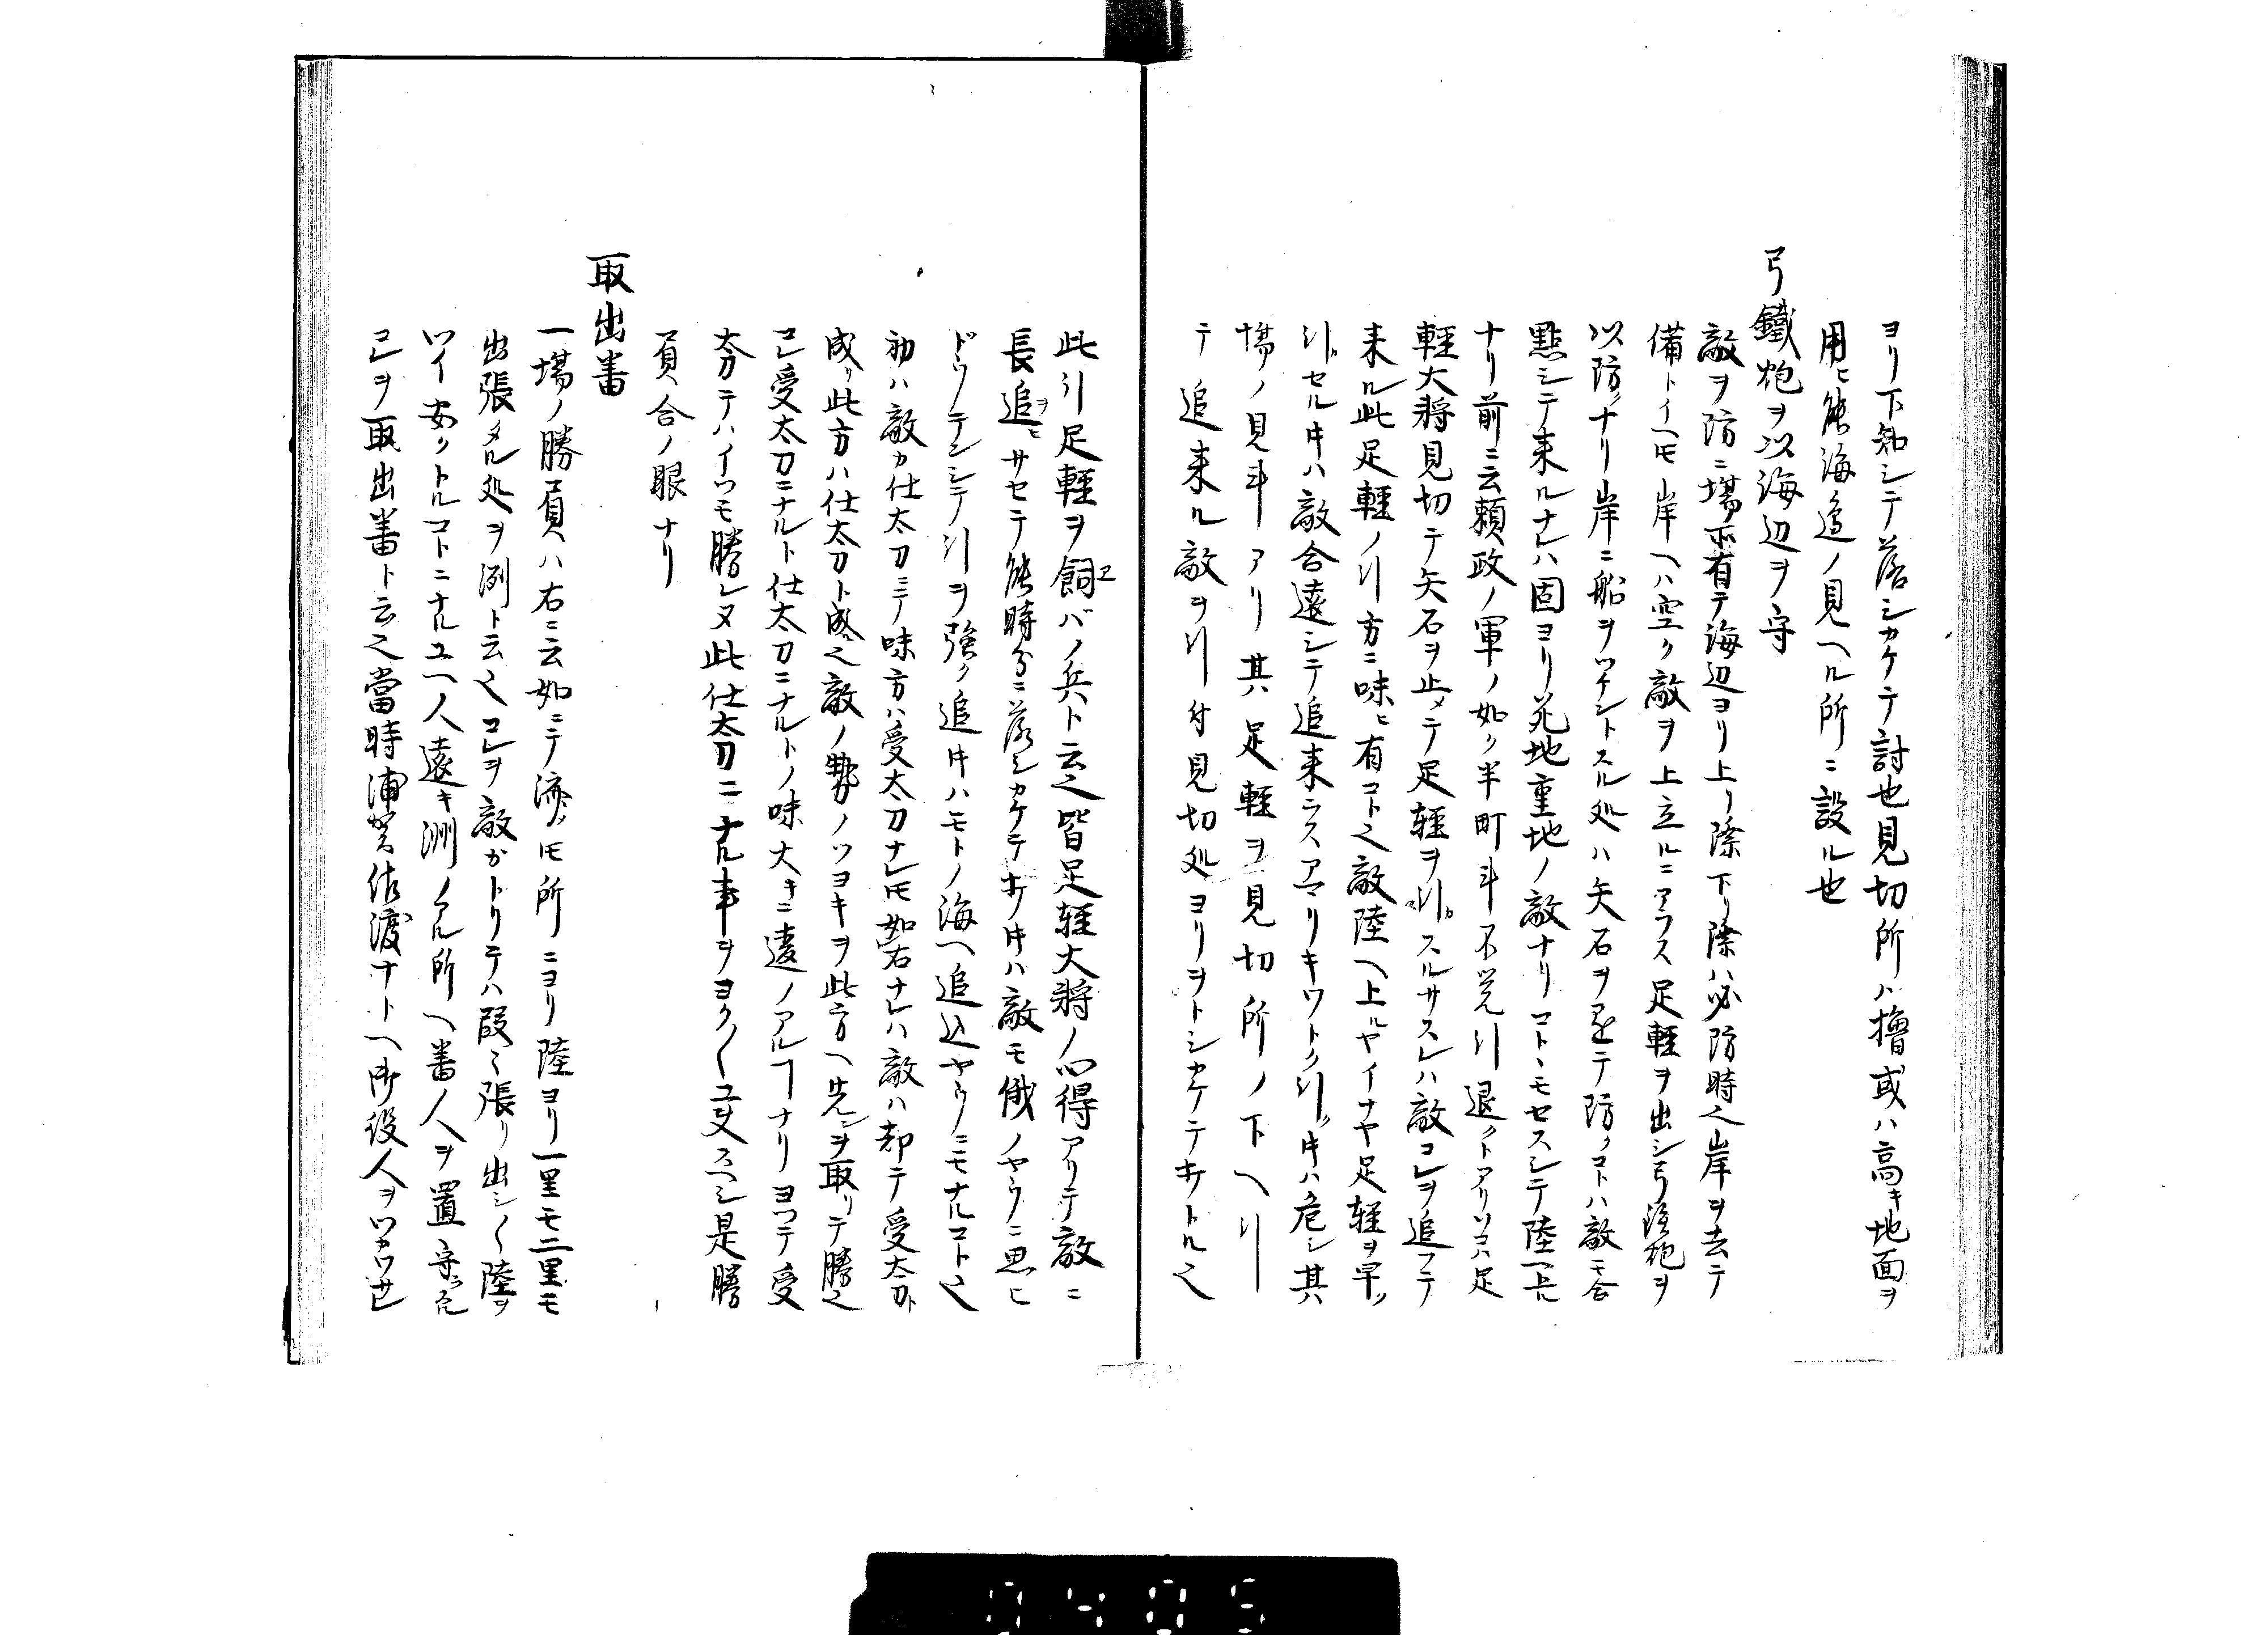 ヨリ下知シテ落シカケテ討也見切所ハ擔或ハ高キ地面ヲ
用ヒ能海邉ノ見ヘル所ニ設ル也
弓鐵炮ヲ以海辺ヲ守
敵ヲ防ニ場所有テ海辺ヨリ上リ際下リ際ハ必防時也岸ヲ去テ
備トイヘ𪜈岸ヘハ空ク敵ヲ上立ルニアラス足軽ヲ出シ弓鐵炮ヲ
以防クナリ岸ニ船ヲツケントスル処ハ矢石ヲ テ防クコトハ敵モ合
點シテ来ルナレハ固ヨリ死地重地ノ敵ナリコトヽモセスシテ陸ヘ上ル
ナリ前ニ云頼政ノ軍ノ如ク半町斗不覚引退クトアリソコハ足
軽大将見切テ矢石ヲ止メテ足軽ヲ引カスルサスレハ敵コレヲ追フテ
来ル此足軽ノ引方ニ味ヒ有コト也敵陸ヘ上ルヤイナヤ足軽ヲ早ク
引セル𪜈ハ敵合遠シテ追来ラスアマリキワトク引ク𪜈ハ危シ其
場ノ見斗アリ其足軽ヲ見切所ノ下ヘ引
テ追来ル敵ヲ引付見切処ヨリヲトシカケテキトル也
此引足軽ヲ飼コバノ兵ト云也皆足軽大将ノ心得アリテ敵ニ
長追ヲヒサセテ能時分ニ落シカケテキル𪜈ハ敵モ俄ノヤウニ思ヒ
ドウテンシテ引ヲ強ク追𪜈ハモトノ海ヘ追込ヤウニモナルコト也
初ハ敵カ仕太刀ニテ味方ハ受太刀ナレ𪜈如右ナレハ敵ハ却テ受太刀ト
成リ此方ハ仕太刀ト成也敵ノ勢ノツヨキヲ此方ヘ先ンヲ取リテ勝也
コレ受太刀ニナルト仕太刀ニナルトノ味大キニ違ノアルヿナリヨツテ受
太刀テハイツモ勝レヌ此仕太刀ニナル事ヲヨク〱ユ夫スヘシ是勝
負合ノ眼ナリ
取出番
一場ノ勝負ハ右ニ云如ニテ済𪜈所ニヨリ陸ヨリ一里モ二里モ
出張タル処ヲ洲ト云也コレヲ敵カトリテハ段〻張リ出シ〱陸ヲ
ツイ安クトルコトニナルユヘ人遠キ洲ノアル所ヘ番人ヲ置守ラル
コレヲ取出番ト云也當時浦賀佐渡ナトヘ御役人ヲツカワサレ